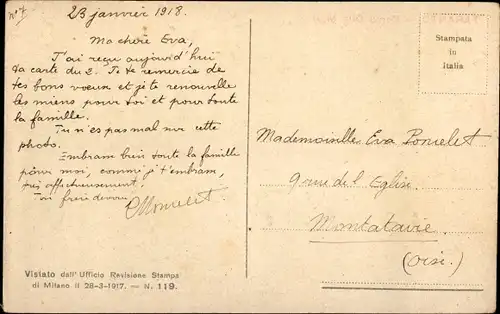 n° 7
23 janvier 1918.
Ma chère Eva,
J'ai reçu aujourd'hui
ta carte du 2. Je te remercie de
tes bons voeux et je te renouvelle
les miens pour toi et pour toute
la famille.
Tu n'es pas mal sur cette
photo.
Embrasse bien toute la famille
pour moi, comme je t'embrasse,
très affectueusement.
Ton frère
Stampata
in
Italia
Mademoiselle Eva Pomelet
9 rue de l'Eglise
Montataire
(Oise.)
Visiato dall' Ufficio Revisione Stampa
di Milano il 28-3-1917. — N. 119.